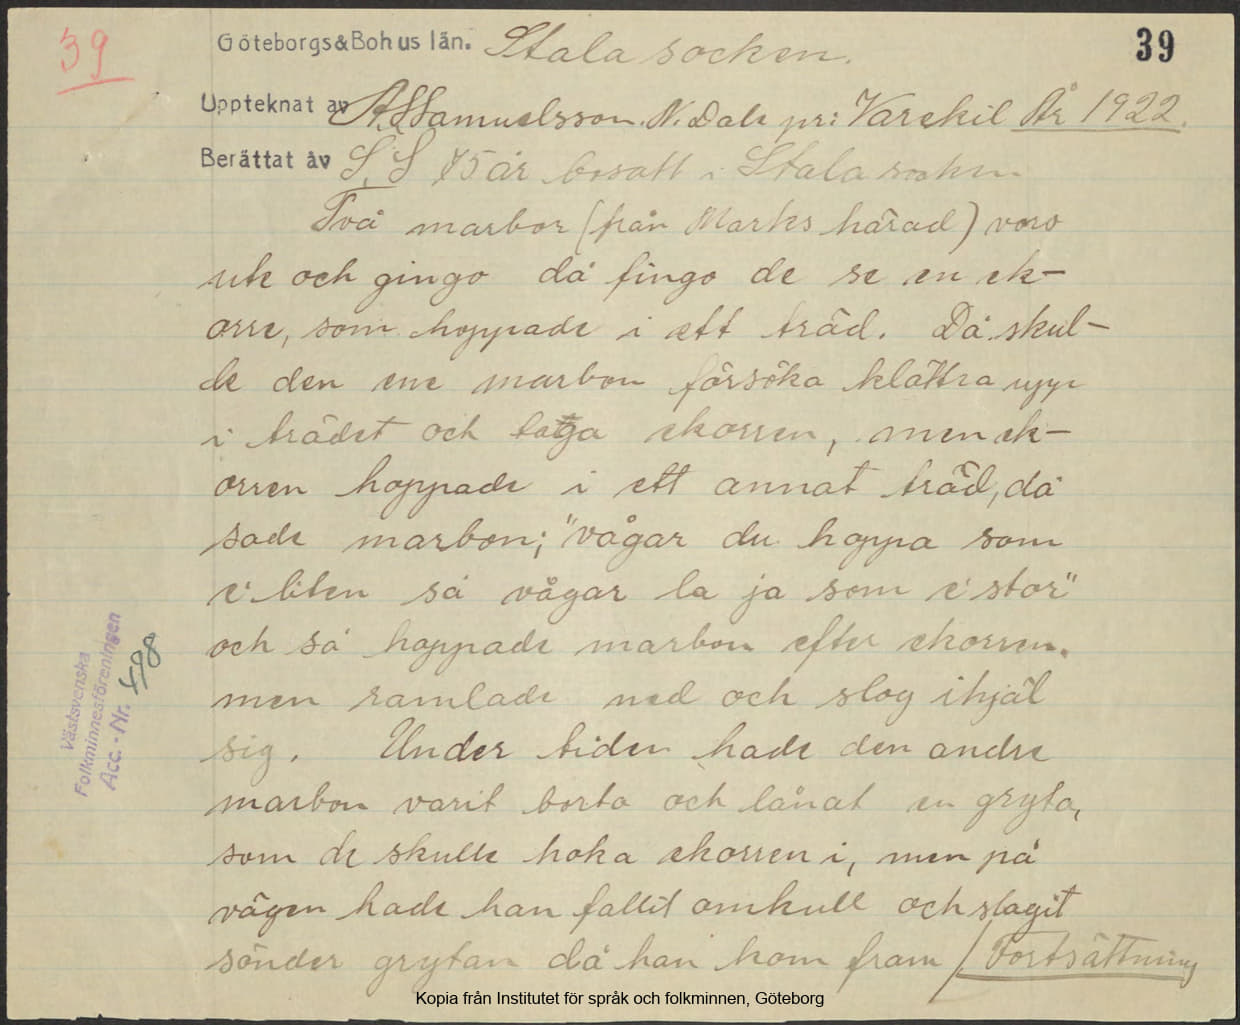 39
Göteborgs&Bohus län. Stala socken.
39
Uppteknat av A. Samuelsson. N. Dale pr: Varekil År 1922.
Berättat av S. S 75 år bosatt i Stala socken
Två marbor (från Marks härad) voro
ute och gingo då fingo de se en ek-
orre, som hoppade i ett träd. Då skul-
de den ene marbon försöka klättra upp
i trädet och taga ekorren, men ek-
orren hoppade i ett annat träd, då
sade marbon; "vågar du hoppa som
e' liten så vågar la ja som e' stor"
och så hoppade marbon efter ekorren.
men ramlade ned och slog ihjäl
sig. Under tiden hade den andre
marbon varit borta och lånat en gryta,
som de skulle koka ekorren i, men på
vägen hade han fallit omkull och slagit
sönder grytan då han kom fram / Fortsättning
Västsvenska
Folkminnesföreningen
Acc.-Nr. 498
Kopia från Institutet för språk och folkminnen, Göteborg